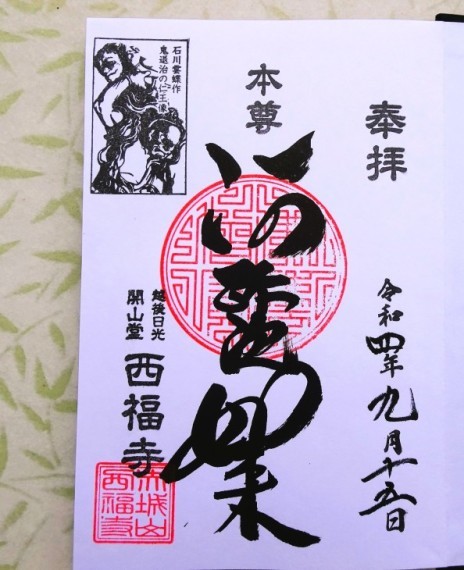 奉拝
令和四年九月十五日
本尊
阿弥陀如来
石川雲蝶作
鬼退治の仁王像
越後日光
開山堂
西福寺
赤城山
西福寺